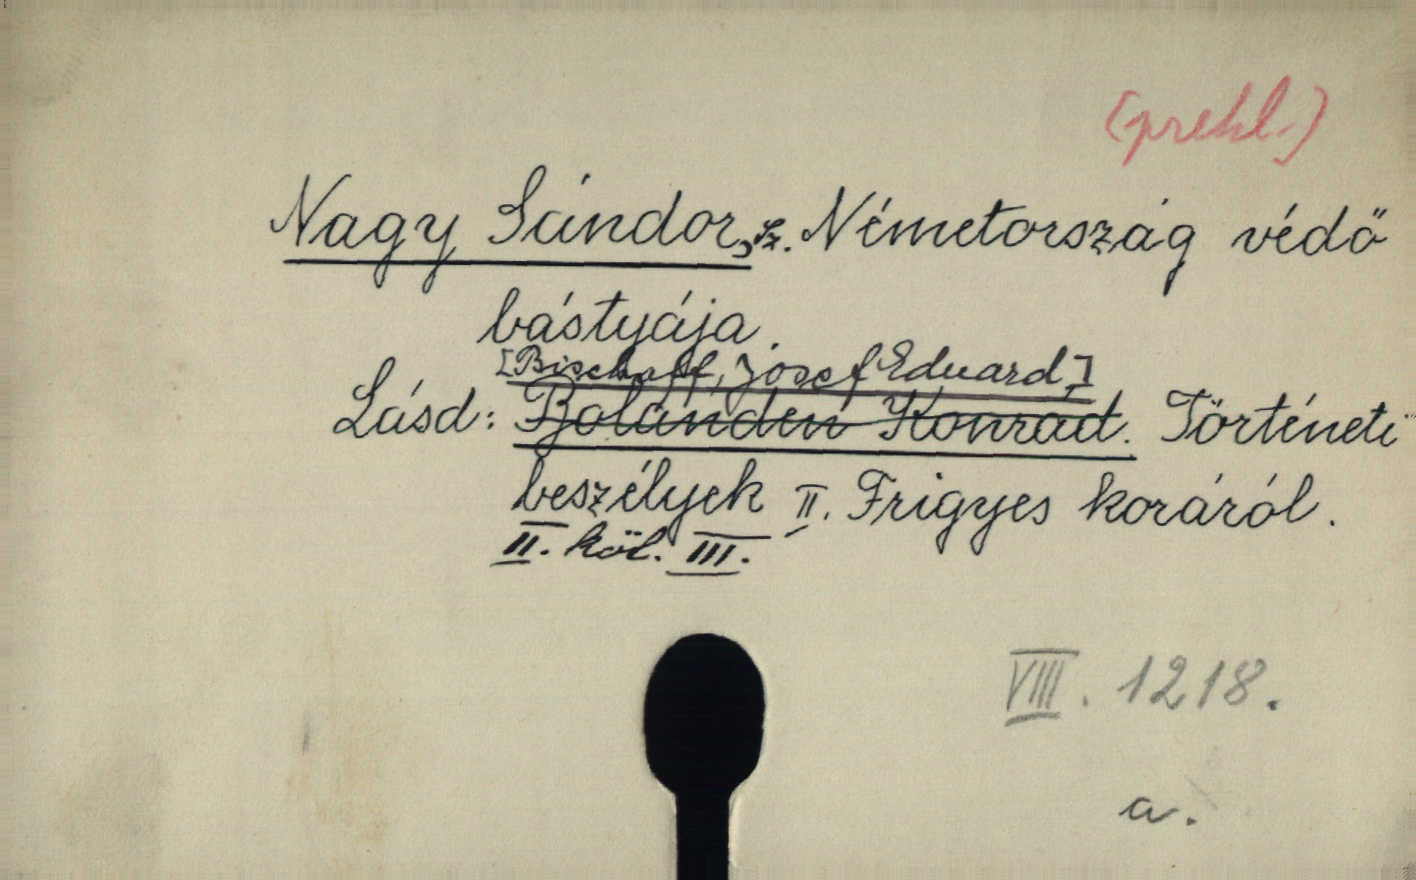 (prekl.)
Nagy Sándor, Sz. Németország védő
bástyája.
[Bischoff, Josef Eduard,]
Lásd: Bolanden Konrad. Történeti
beszélyek II. Frigyes koráról.
II. köt. III.
VIII. 1218.
a.